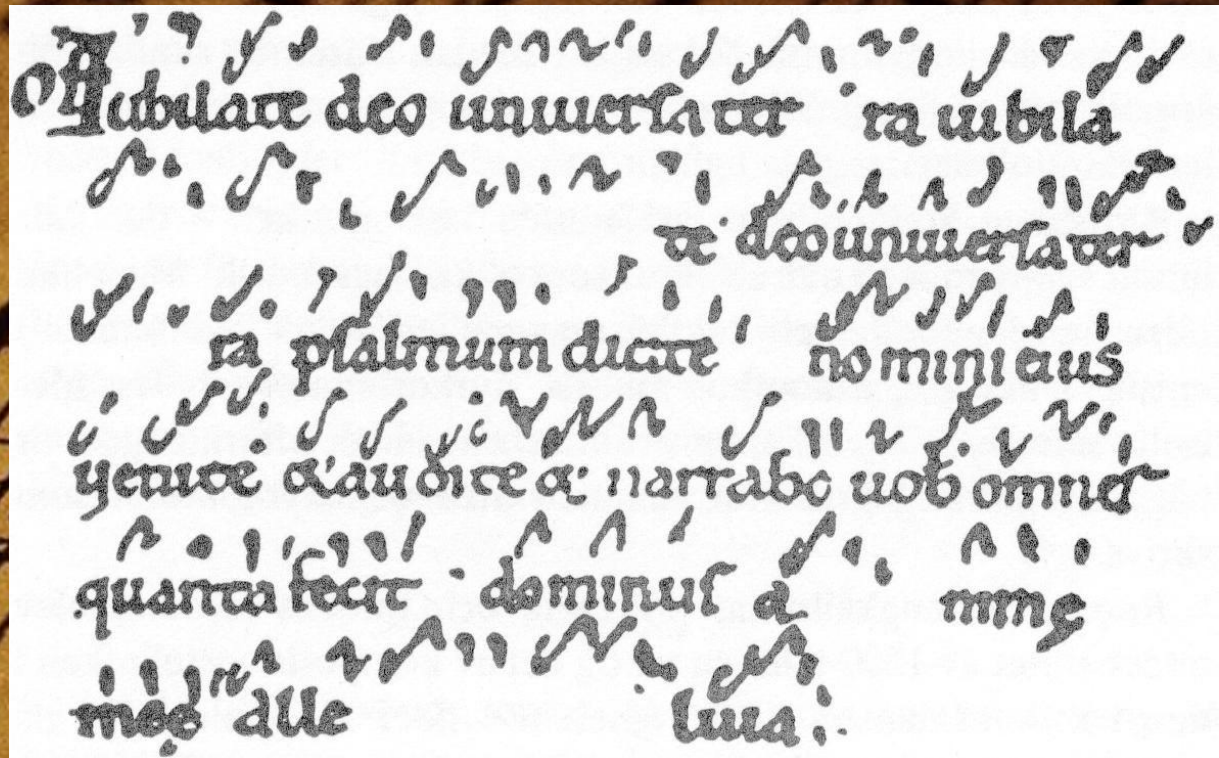 Of Iubilate deo uniuersa ter ra iubila
te deo uniuersa ter
ra psalmum dicite nomini eius
uenite & audite & narrabo uob omnia
quanta fecit dominus a nimę
meę alle luia